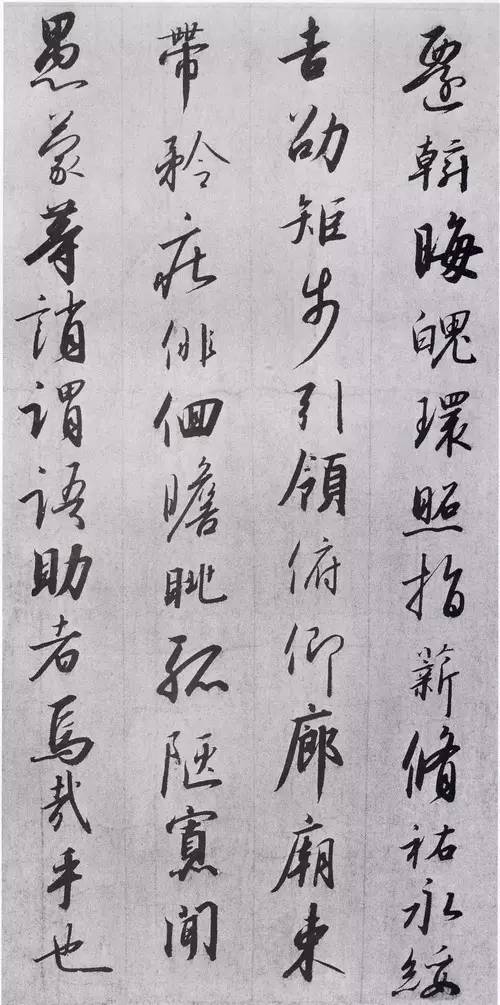 懸斡晦魄環照指薪脩祐永綏
吉劭矩步引領俯仰廊廟束
帶矜莊俳佪瞻眺孤陋寡聞
愚蒙等誚謂語助者焉哉乎也